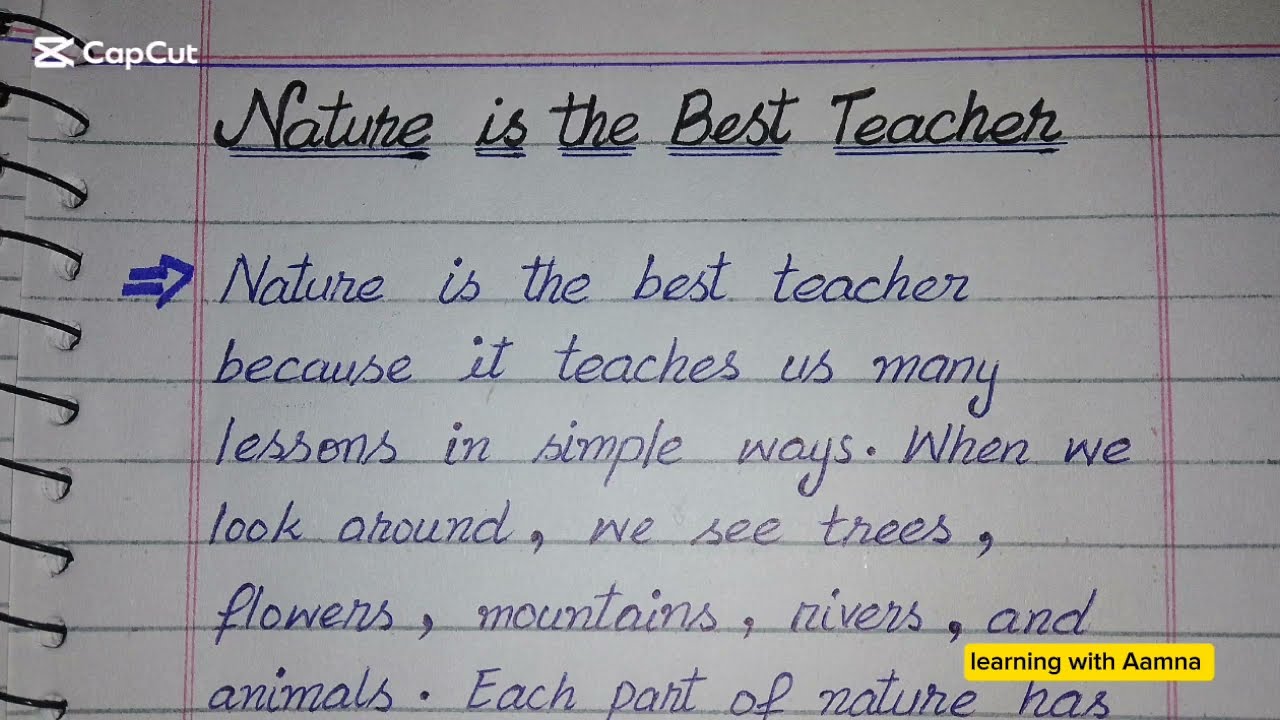 CapCut
Nature is the Best Teacher
⇒ Nature is the best teacher
because it teaches us many
lessons in simple ways. When we
look around, we see trees,
flowers, mountains, rivers, and
learning with Aamna
animals. Each part of nature has